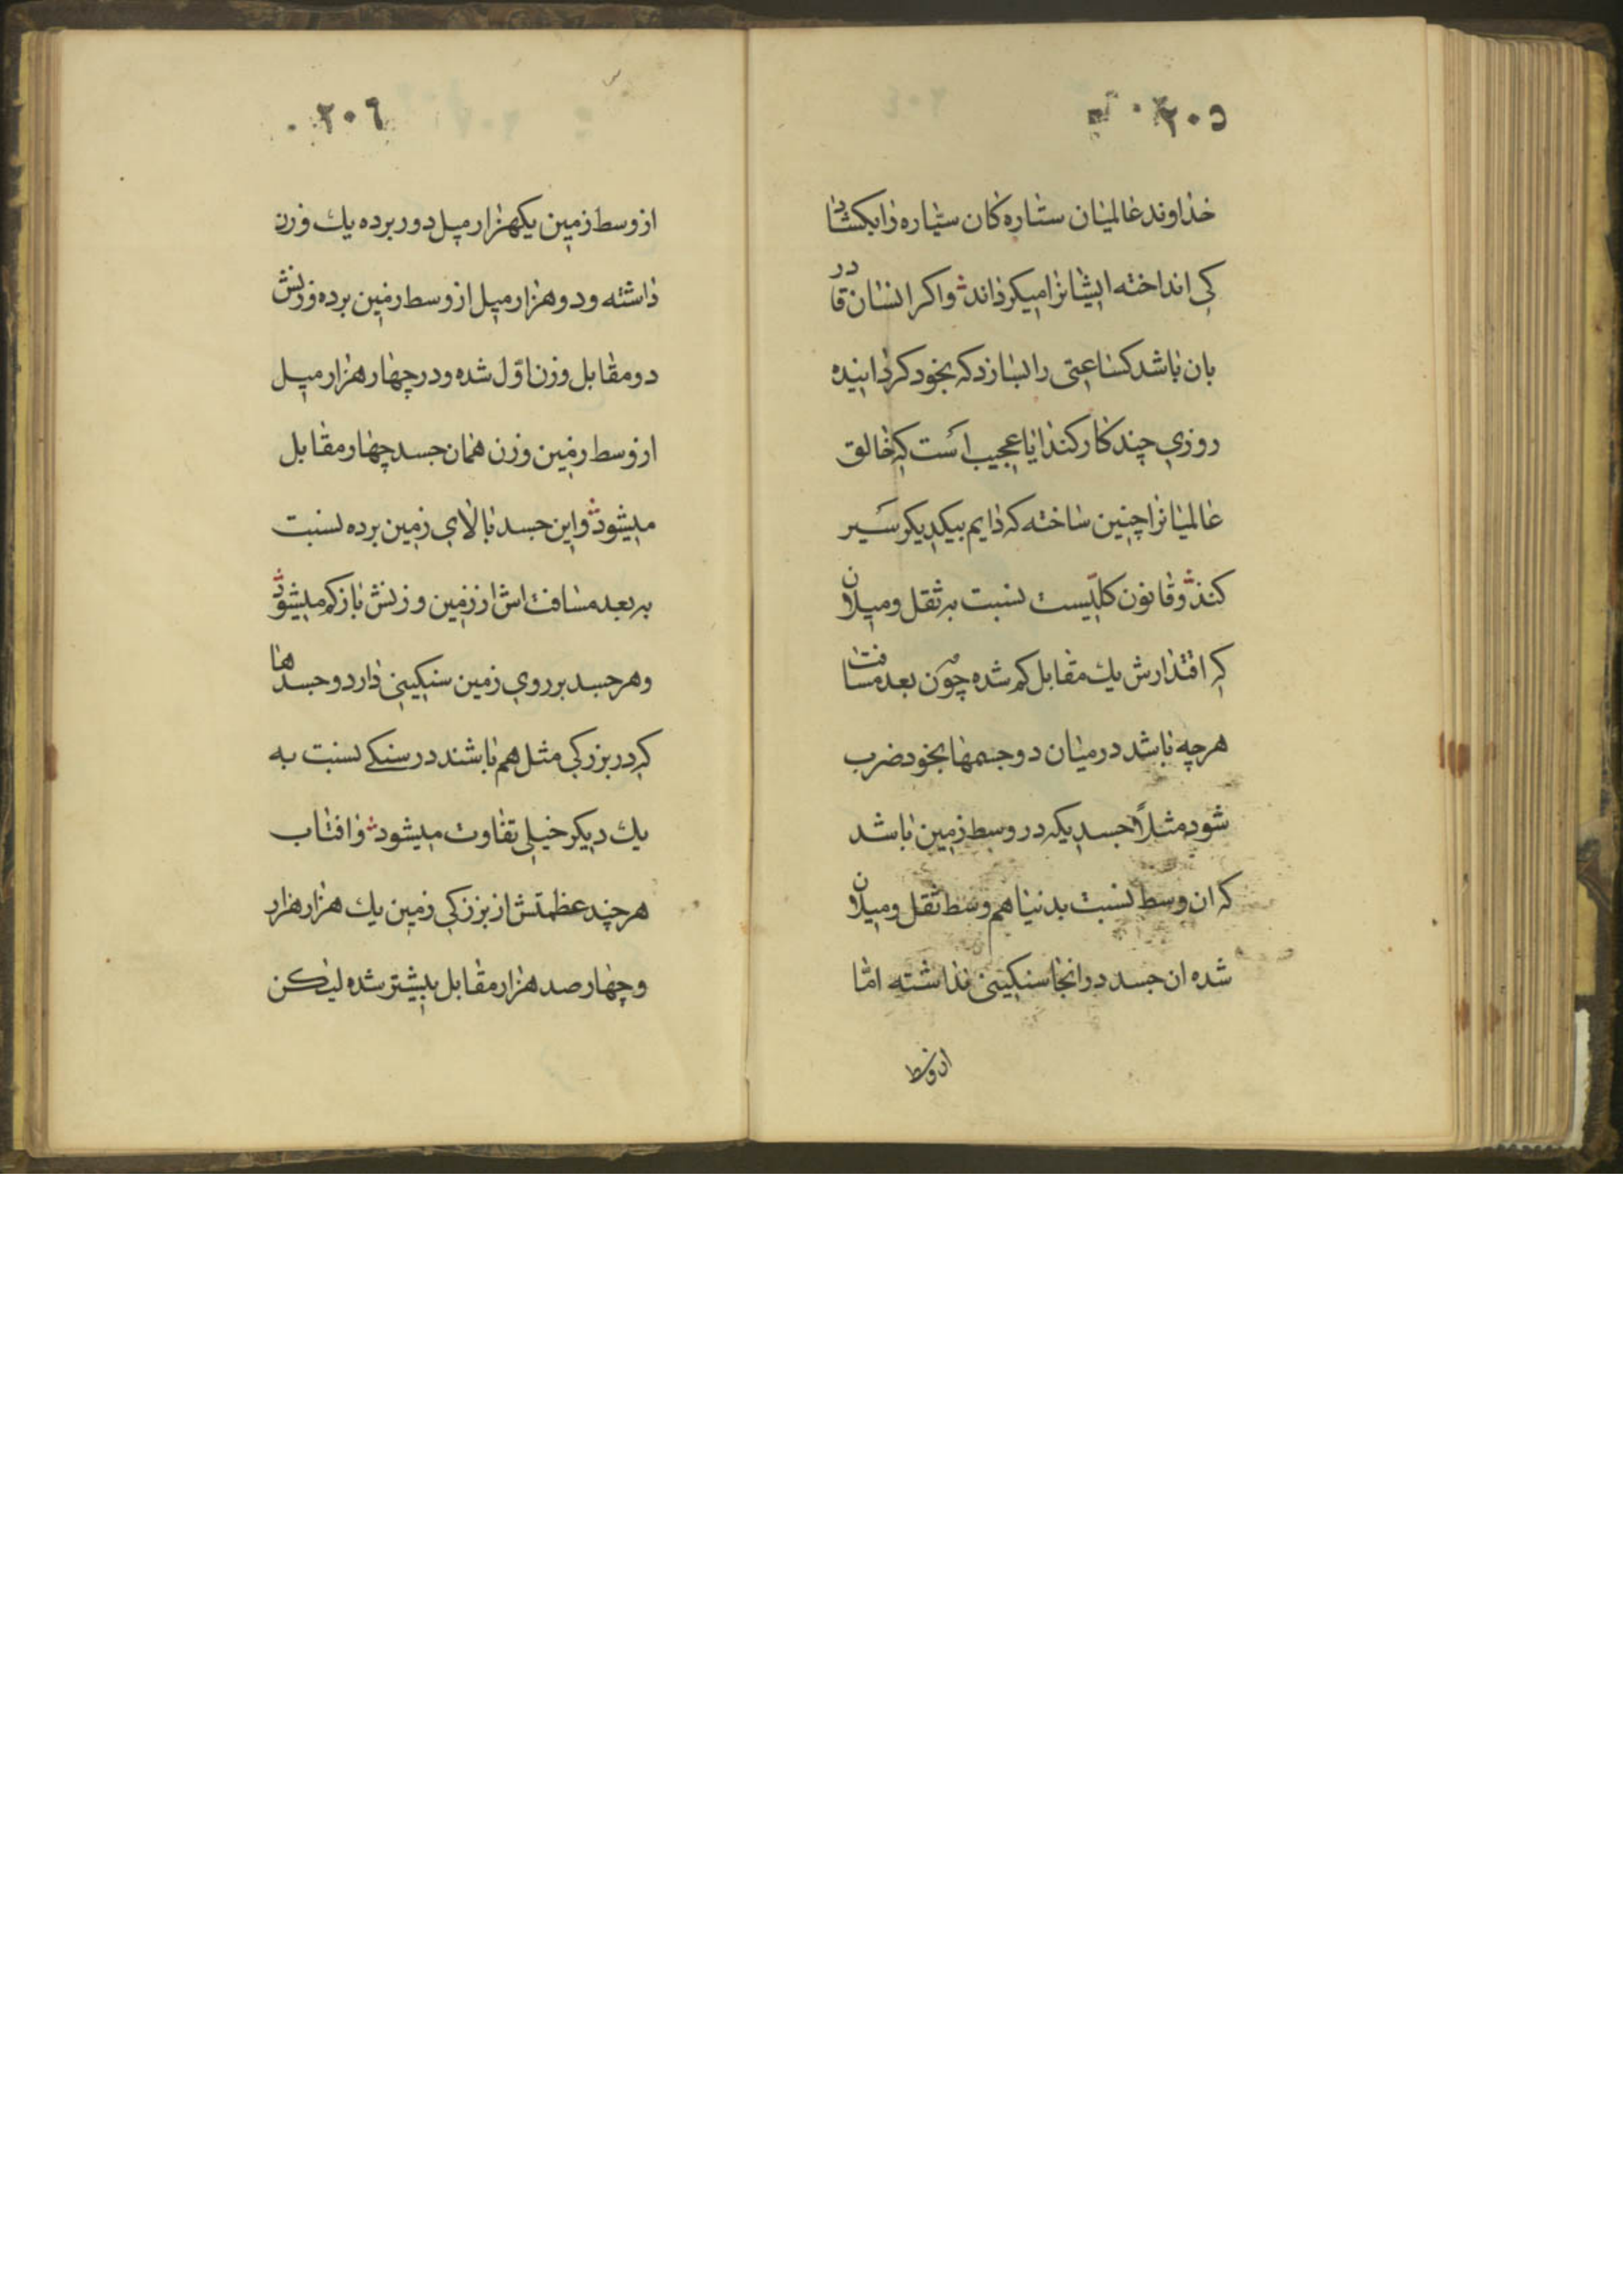 ٢٠٥
خداوند عالمیان ستاره کان سیّاره را بکشاد
کی انداخته ایشانرا میکرداند و اکر انسان قادر
بان باشد کساعتی را بسازد که بخود کردانیده
روزی چند کار کند ایا عجیب است که خالق
عالمیانرا چنین ساخته که دایم بیکدیکر سیر
کند و قانون کلّیست نسبت به ثقل و میلان
که اقتدارش یك مقابل کم شده چون بعد مسافت
هرچه باشد در میان دو جسمها بخود ضرب
شود مثلاً جسدیکه در وسط زمین باشد
که ان وسط نسبت بدنیا هم وسط ثقل و میلان
شده ان جسد در انجا سنکینی نداشته امّا
از وسط
٢٠٦
از وسط زمین یکهزار میل دور برده یك وزن
داشته و دو هزار میل از وسط زمین برده وزنش
دو مقابل وزن اوّل شده و در چهار هزار میل
از وسط زمین وزن همان جسد چهار مقابل
میشود و این جسد بالای زمین برده نسبت
به بعد مسافت اش از زمین وزنش باز کم میشود
و هر جسد بر روی زمین سنکینی دارد و جسدها
که در بزرکی مثل هم باشند در سنکے نسبت به
یك دیکر خیلی تفاوت میشود و افتاب
هرچند عظمتش از بزرکی زمین یك هزار هزار
و چهار صد هزار مقابل بیشتر شده لیکن